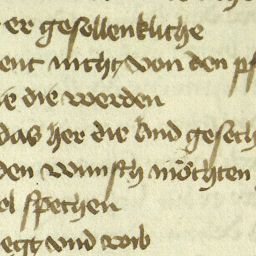 er gesellenkliche
ent nicht von den pf
ie die werden
das her die sind gesech
den wunsch möchten
ol spechen
egt vnd wib